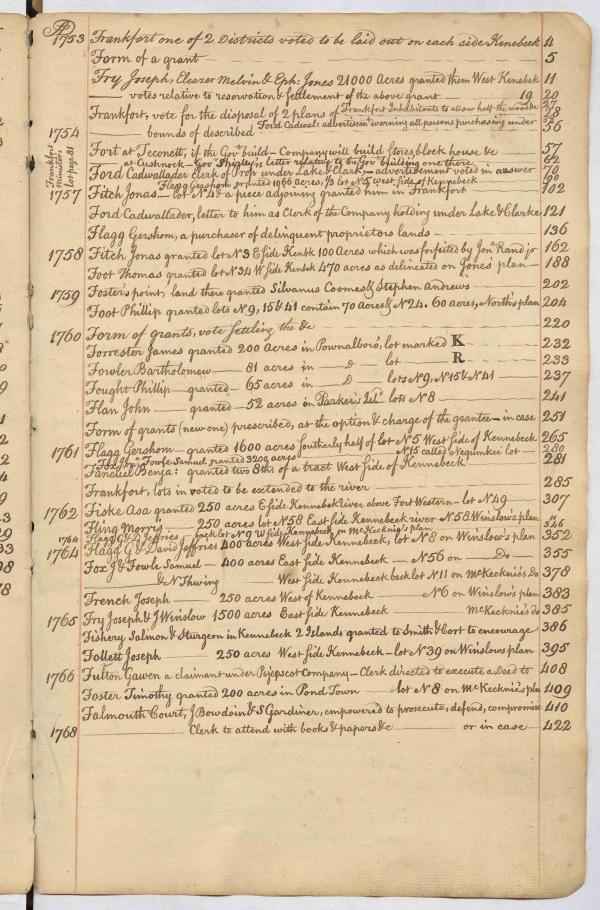 1753 Frankfort one of 2 Districts voted to be laid out on each side Kenebeek 4
Form of a grant 5
Fry Joseph, Eleazer Melvin & Eph: Jones 21000 Acres granted them West Kenebek 11
votes relative to reservation & settlement of the above grant 19 20
Frankfort Inhabitants to allow half the woods 27
Frankfort, vote for the disposal of 2 plans of 28
Ford Cadwal: advertisemt. warning all persons purchasing under
1754 bounds of described 56
Frankfort Ministers lot page 81
Fort at Teconett, if the Govr. build - Company will build Stores, block house &c 57
at Cushnock - Govr. Shirley's letter relative to the Govr. building one there 62
Ford Cadwallader Clerk of Prop under Lake & Clark, - advertisement voted in answer 70
Flagg Gershom granted 1066 acres, 1/3 lot N 5 west side of Kennebeck 90
1757 Fitch Jonas - lot N 18 & a piece adjoining granted him in Frankfort 102
Ford Cadwallader, letter to him as Clerk of the Company holding under Lake & Clarke 121
Flagg Gershom, a purchaser of delinquent proprietors lands 136
1758 Fitch Jonas granted lot N 3 E side Kenbk 100 Acres which was forfeited by Jona. Rand jr 162
Foot Thomas granted lot N 34 W side Kenbk 470 acres as delineated on Jones' plan 188
1759 Foster's point, land there granted Silvanus Coomes & Stephen Andrews 202
Foot Phillip granted lots N 9, 15 & 41 contain 70 Acres & N 24. 60 acres, North's plan 204
1760 Form of grants, vote settling the &c 220
Forrester James granted 200 acres in Pownalboro, lot marked K 232
Fowler Bartholomew 81 acres in Do lot R 233
Fought Phillip granted 65 acres in Do lots N 9, N 15 & N 41 237
Flan John granted 52 acres in Parker's Isld. lots N 8 241
Form of grants (new one) prescribed, at the option & charge of the grantee - in case 251
1761 Flagg Gershom - granted 1600 acres southerly half of lot N 5 West Side of Kennebeck 265
Fowle Samuel granted 3200 acres N 15 called Negumkee lot 280
Faneuel Benja: granted two 8ths of a tract West side of Kennebeck 281
Frankfort, lots in voted to be extended to the river 285
1762 Fiske Asa granted 250 acres E side Kennebek River above Fort Western - lot N 49 307
Fling Morris 250 acres lot N 58 East side Kennebeck river N 58 Winslow's plan
1764 Flagg G & D Jeffries back lot N 9 W side Kennebeck on McKecknie's plan 346
1764 Flagg G & David Jeffries 200 acres West side Kennebeck, lot N 8 on Winslow's plan 352
Fox J & Fowle Samuel 400 acres East side Kennebeck N 56 on Do 355
& N Thwing West side Kennebeck back lot N 11 on McKecknie's Do 378
French Joseph 250 acres West of Kennebeck N 6 on Winslow's plan 383
1765 Fry Joseph & J Winslow 1500 acres East side Kennebeck McKecknie's do 385
Fishery Salmon & Sturgeon in Kennebeck 2 Islands granted to Smith & Cort to encourage 386
Follett Joseph 250 acres West side Kennebeck - lot N 39 on Winslows plan 395
1766 Fulton Gawen a claimant under Pejepscot Company - Clerk directed to execute a Deed to 408
Foster Timothy granted 200 acres in Pond Town lot N 8 on McKecknie's pln 409
Falmouth Court, J Bowdoin & S Gardiner, empowered to prosecute, defend, compromise 410
1768 Clerk to attend with books & papers &c or in case 422